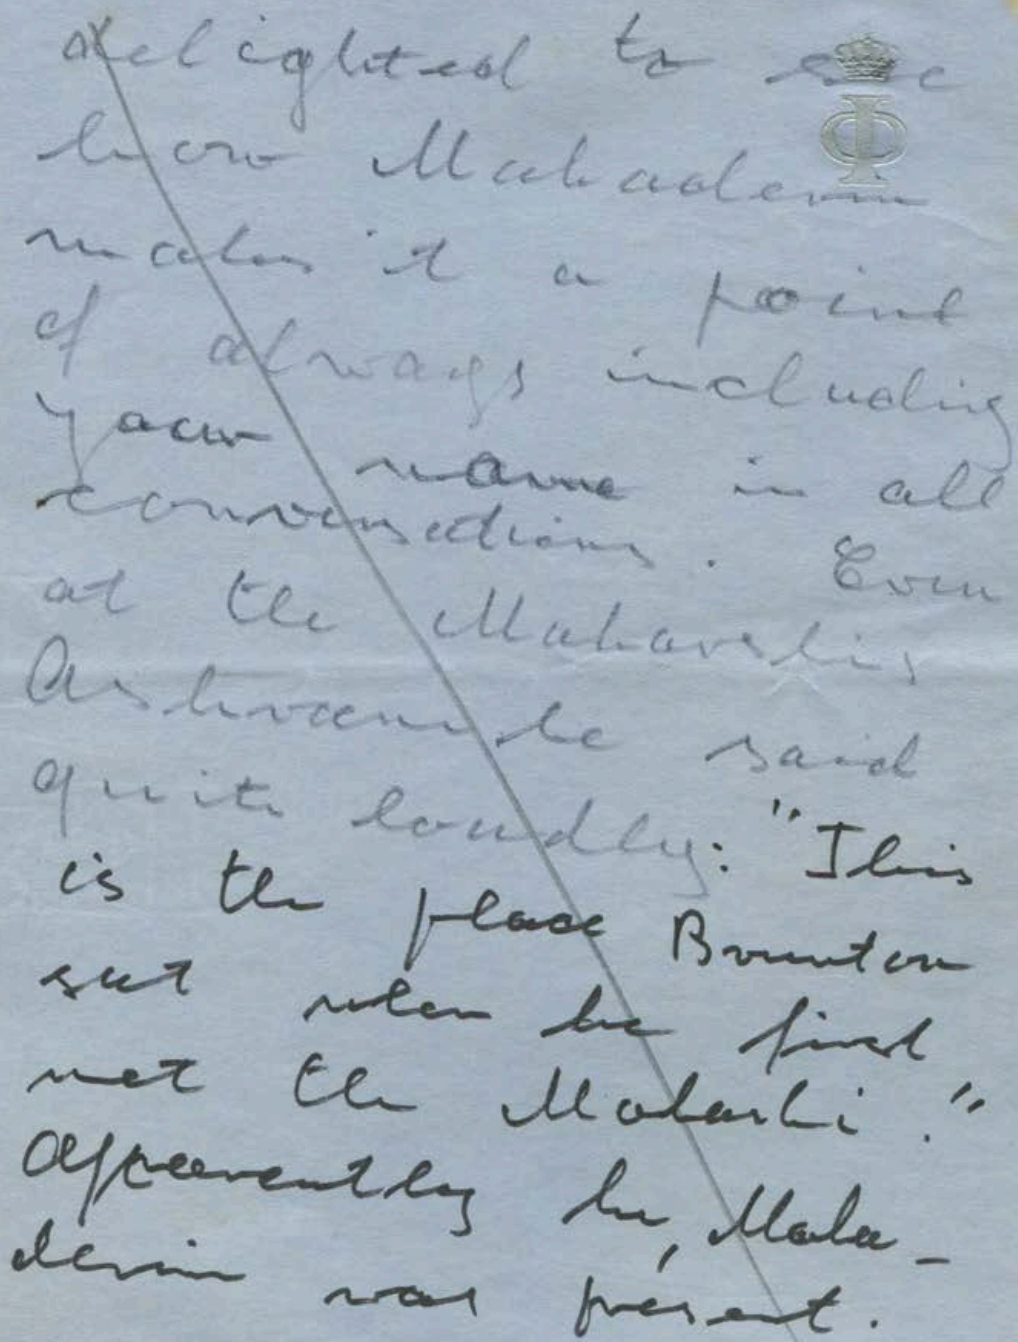 delighted to see
how Mahadevan
makes it a point
of always including
your name in all
conversations. Even
at the Maharshis
Ashram he said
quite loudly: "This
is the place Brunton
sat when he first
met the Maharshi."
Apparently he, Maha-
devan was present.